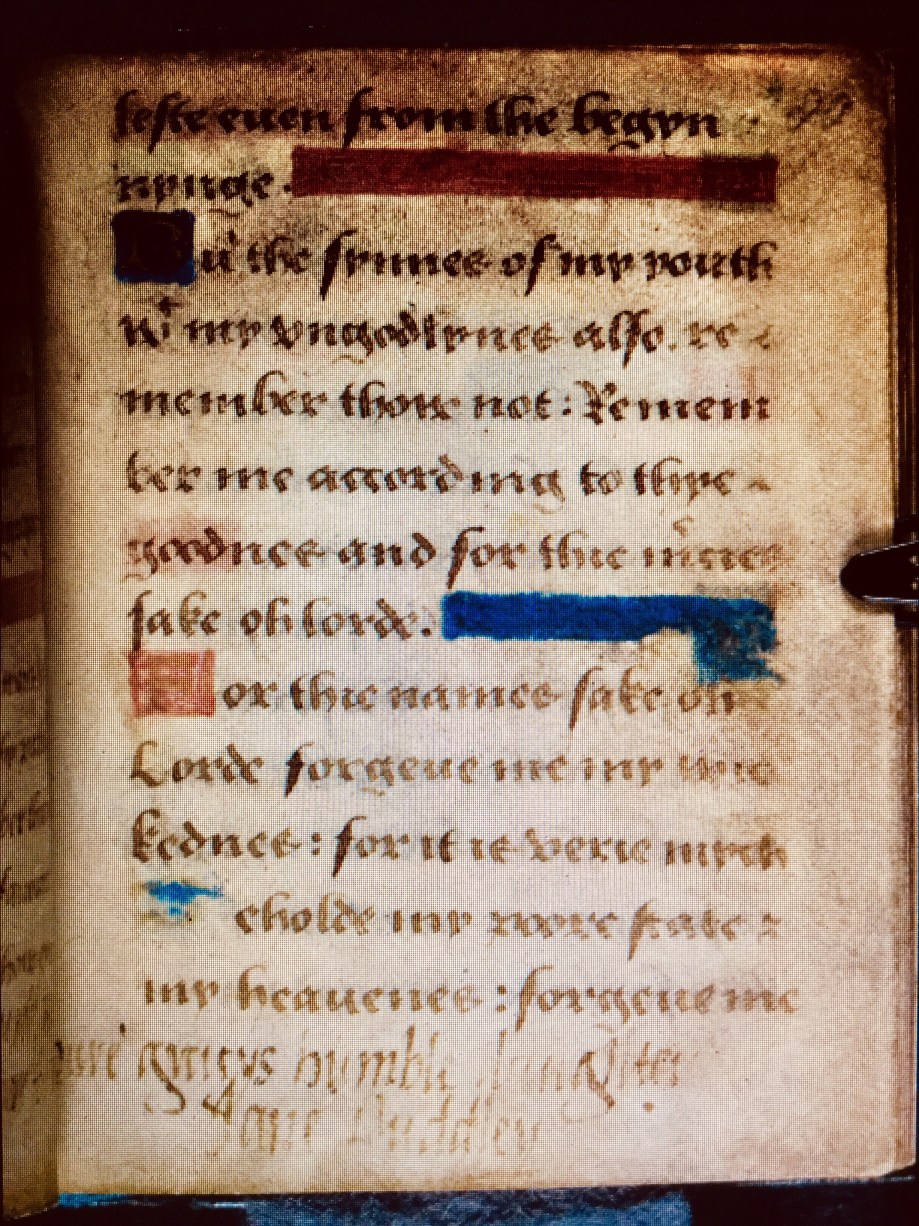 leste euen from the begyn
nynge.
But the synnes of my youth
wt my vngodlynes also. re
member thow not: Remem
ber me accordinɡ to thye
goodnes and for thie mcies
sake oh lorde.
For thie names sake oh
Lorde forgeue me my wic
kednes: for it is verie mych
eholde my pore state &
my heauenes: forgeue me
youre graces humble daughter
Jane Duddley
90